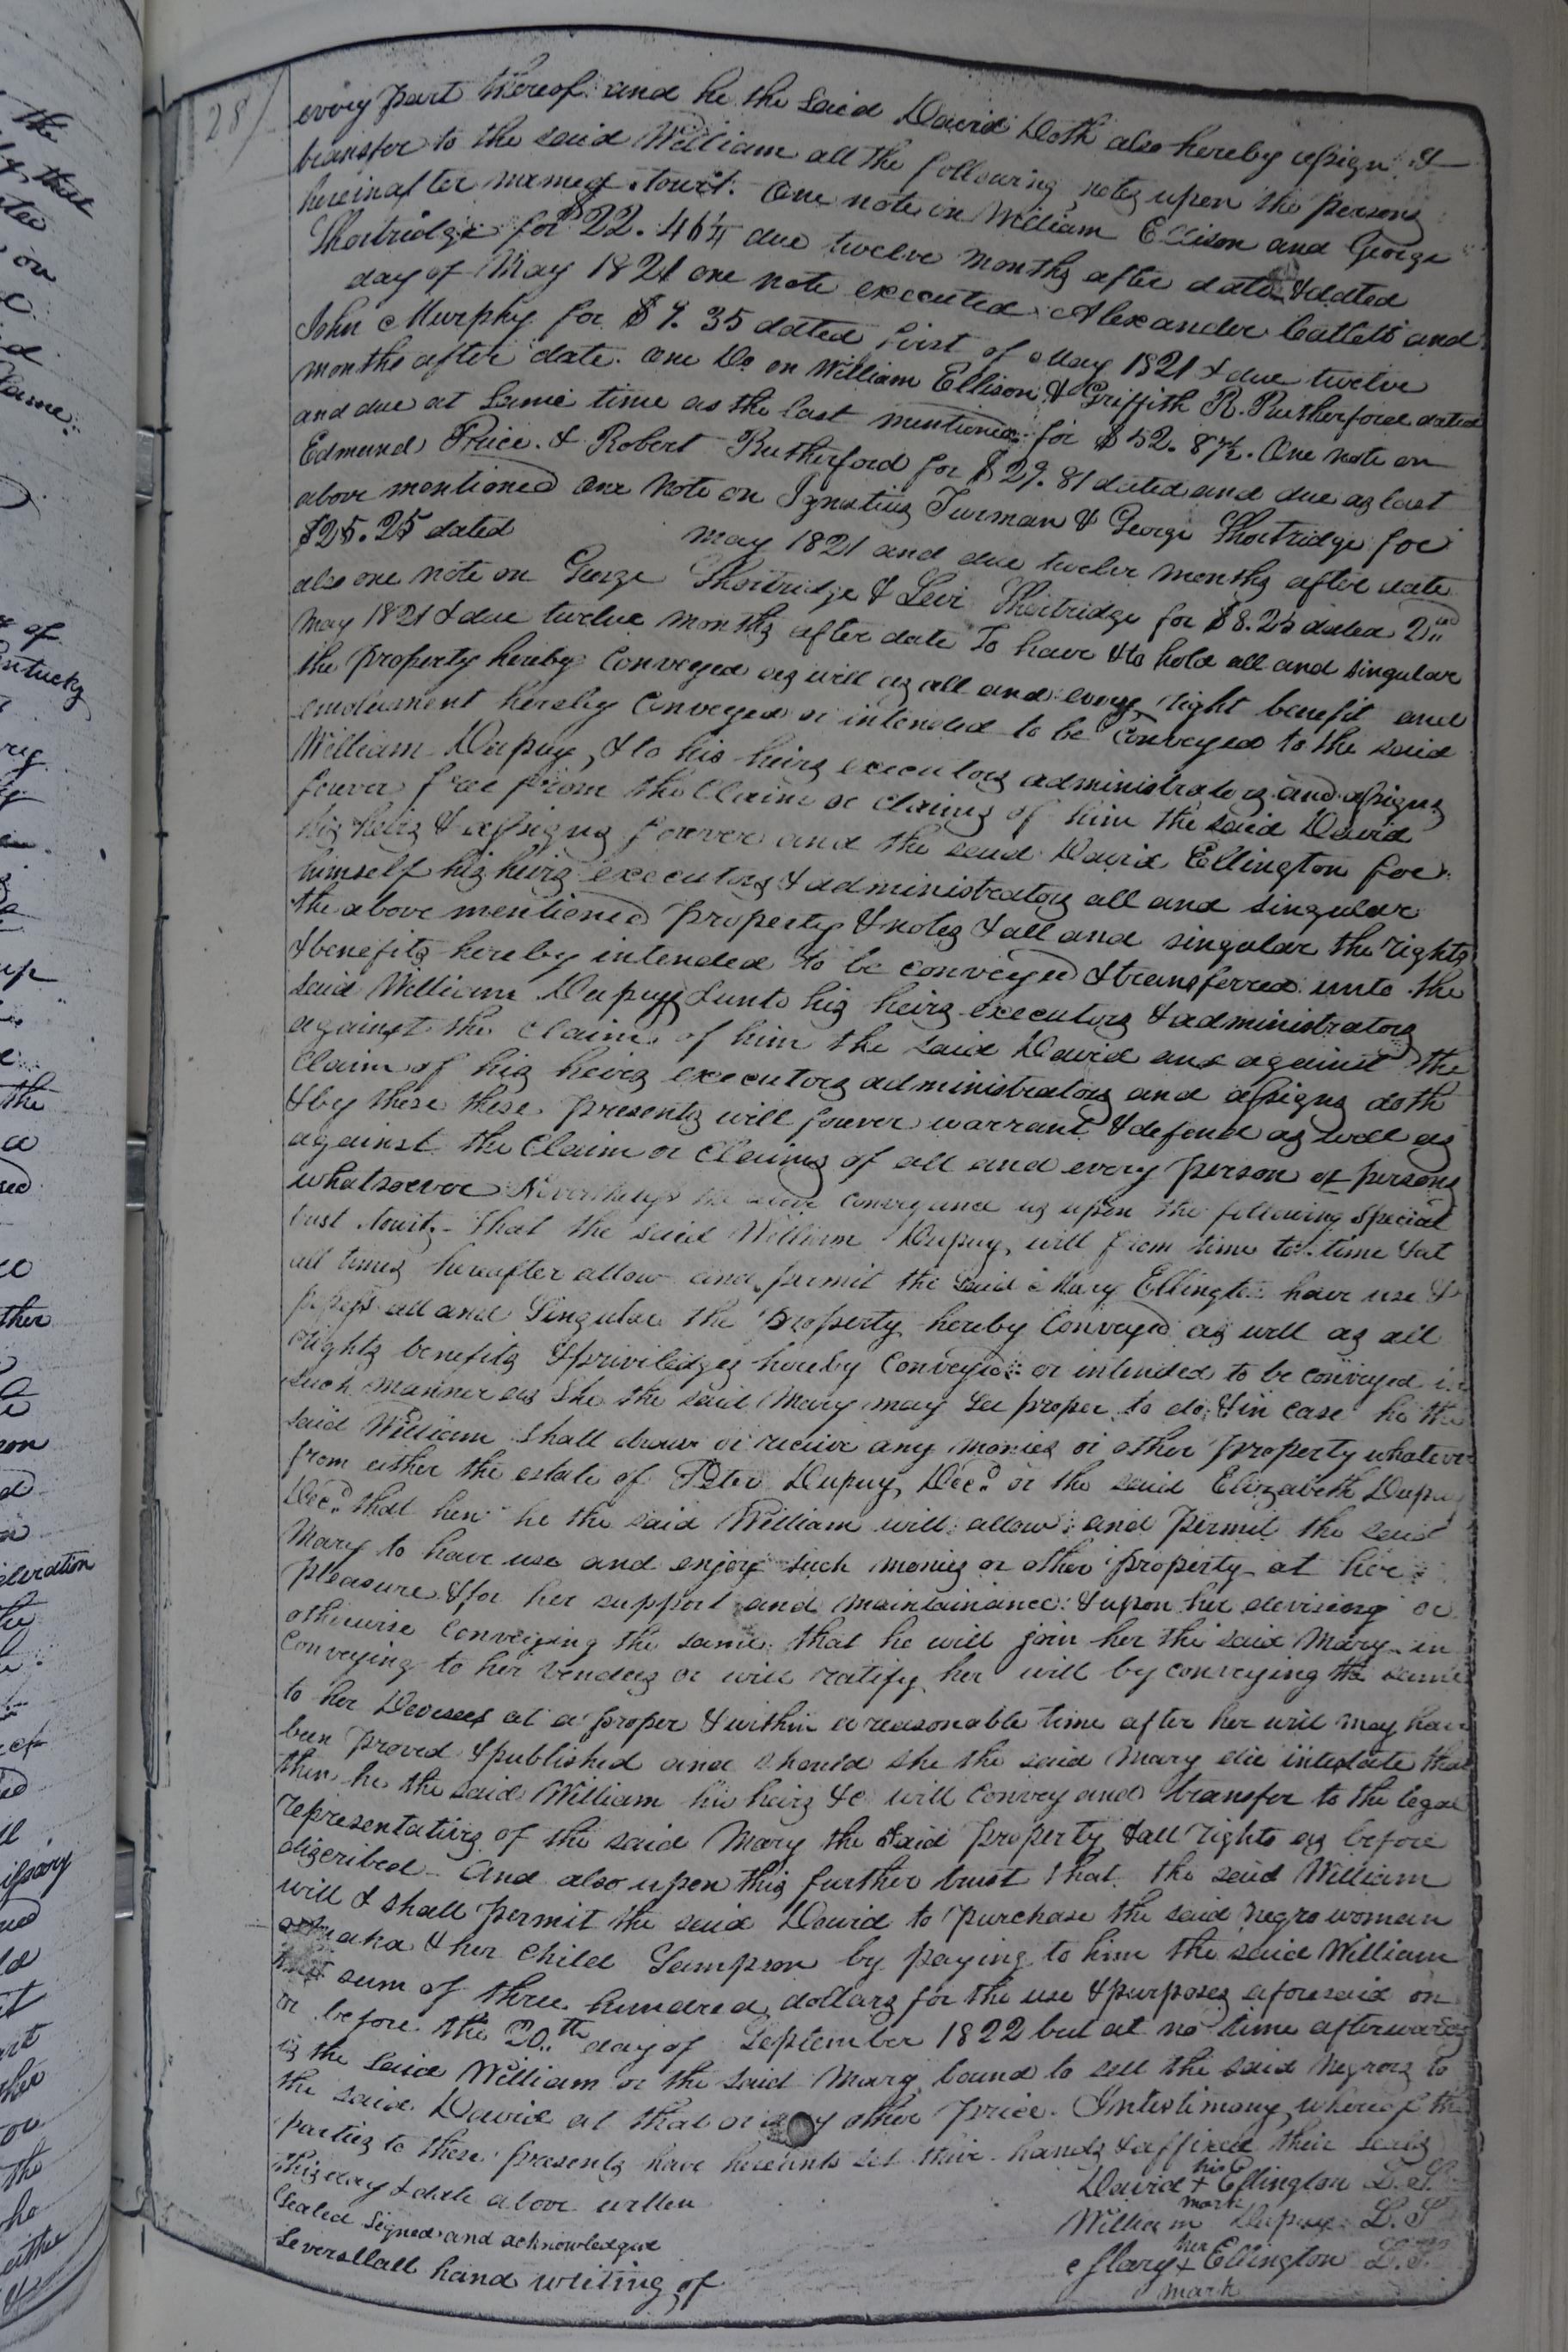 28
every part thereof and he the said David Doth also hereby assign &
transfer to the said William all the following notes upon the persons
hereinafter named towit. One note on William Ellison and George
Shortridge for $22.46¼ due twelve months after date & dated
day of May 1821 one note executed Alexander Catlett and
John Murphy for $9.35 dated first of May 1821 & due twelve
months after date. One Do on William Ellison & Griffith R. Rutherford dated
and due at same time as the last mentioned for $52.87½. One note on
Edmund Price & Robert Rutherford for $29.81 dated and due as last
above mentioned one note on Ignatius Turman & George Shortridge for
$25.25 dated May 1821 and due twelve months after date
also one note on George Shortridge & Levi Shortridge for $8.25 dated 2nd
May 1821 & due twelve months after date To have & to hold all and singular
the property hereby Conveyed as well as all and every right benefit and
emolument hereby Conveyed or intended to be Conveyed to the said
William Dupuy, & to his heirs executors administrators and assigns
forever free from the Claim or claims of him the said David
his heirs & assigns forever and the said David Ellington for
himself his heirs executors & administrators all and singular
the above mentioned property & notes & all and singular the rights
& benefits hereby intended to be conveyed & transferred unto the
said William Dupuy & unto his heirs executors & administrators
against the Claim of him the said David and against the
Claim of his heirs executors administrators and assigns doth
& by these these presents will forever warrant & defend as well as
against the Claim or Claims of all and every person or persons
whatsoever Nevertheless conveyance is upon the following special
trust towit. That the said William Dupuy, will from time to time & at
all times hereafter allow and permit the said Mary Ellington have use &
possess all and Singular the property hereby Conveyed as well as all
rights benefits & priviledges hereby Conveyed or intended to be conveyed in
such manner as She the said Mary may see proper to do & in case he the
said William shall draw or receive any monies or other property whatever
from either the estate of Peter Dupuy, Decd or the said Elizabeth Dupuy
Decd that he the said William will allow and permit the said
Mary to have use and enjoy such monies or other property at her
pleasure & for her support and maintainance & upon her devising or
otherwise Conveying the same that he will join her the said Mary in
Conveying to her vendees or will ratify her will by conveying the same
to her Devisees at a proper & within a reasonable time after her will may have
been proved & published and should she the said Mary die intestate that
then he the said William his heirs &c will Convey and transfer to the legal
representatives of the said Mary the said property & all rights as before
discribed. And also upon this further trust that the said William
will & shall permit the said David to purchase the said negro woman
& her Child Sampson by paying to him the said William
the sum of three hundred dollars for the use & purposes aforesaid on
or before the 20th day of September 1822 but at no time afterwards
is the said William or the said Mary bound to sell the said negroes to
the said David at that or any other price. In testimony whereof the
parties to these presents have hereunto set their hands & affixed their seals
this day & date above written
Sealed Signed and acknowledged
Severallall hand writing of
his
David + Ellington L.S.
mark
William Dupuy L.S
her
Mary + Ellington L.S.
mark